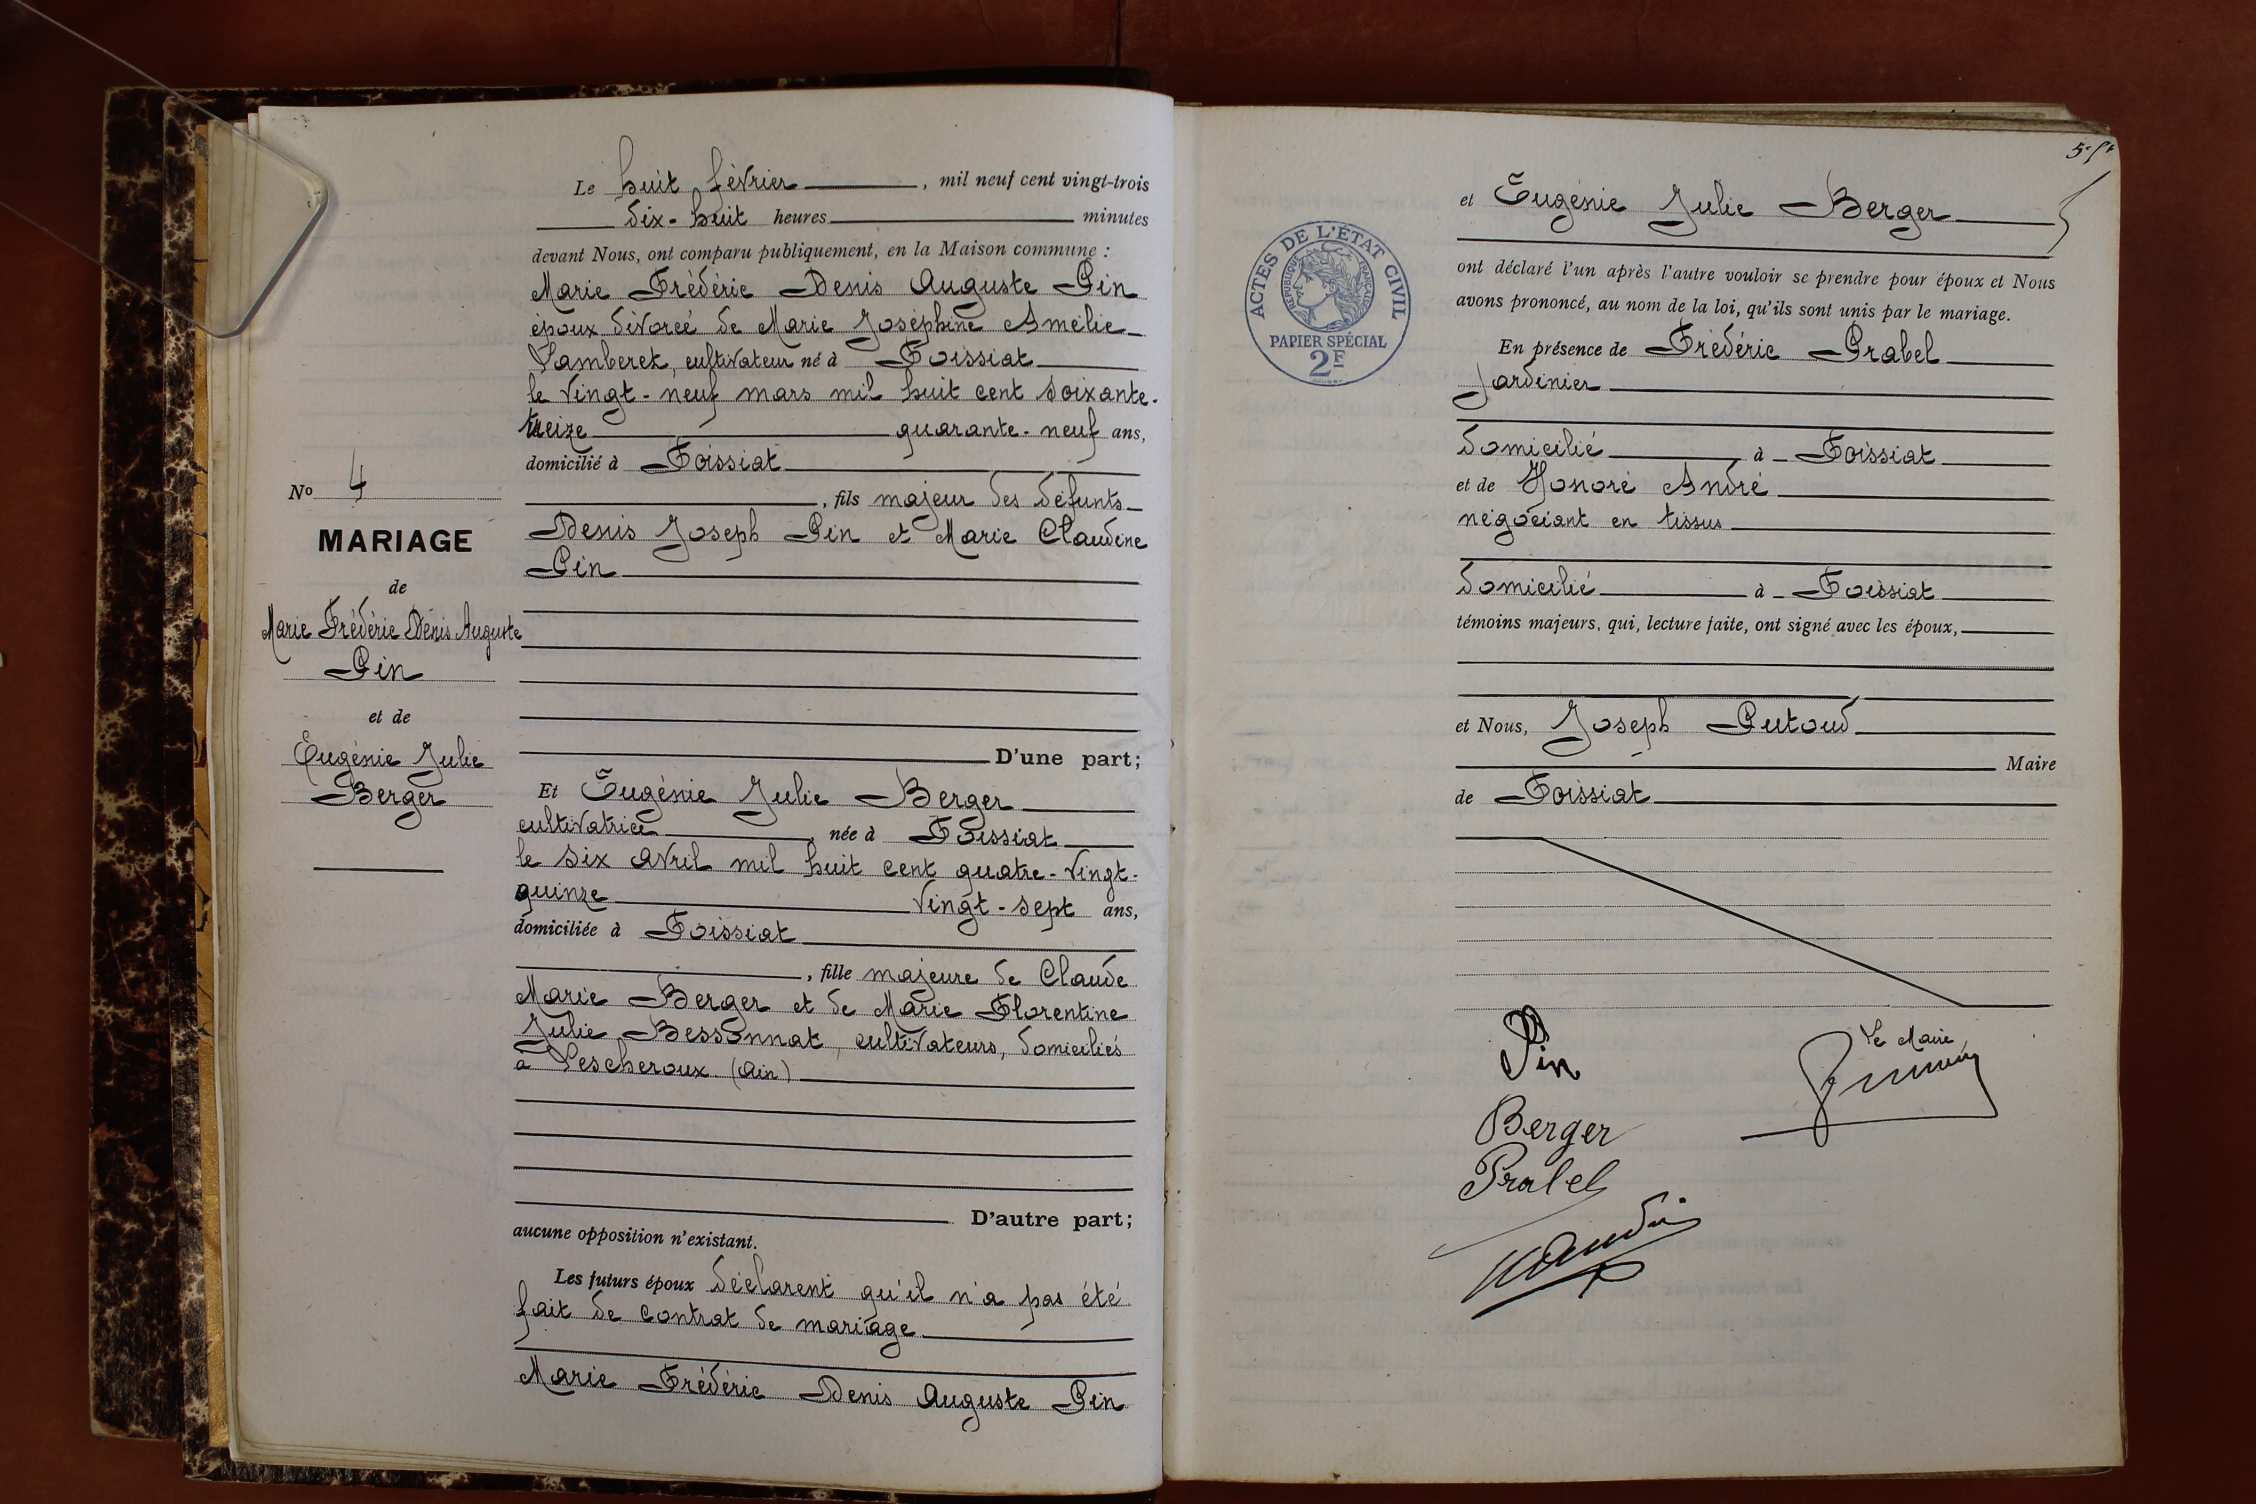 Le huit février, mil neuf cent vingt-trois
dix-huit heures minutes
devant Nous, ont comparu publiquement, en la Maison commune :
Marie Frédéric Denis Auguste Pin
époux divorcé de Marie Joséphine Amélie
Lamberet, cultivateur né à Foissiat
le vingt-neuf mars mil huit cent soixante-
treize quarante-neuf ans,
domicilié à Foissiat
, fils majeur des défunts
Denis Joseph Pin et Marie Claudine
Pin
D'une part;
Et Eugénie Julie Berger
cultivatrice, née à Foissiat
le six avril mil huit cent quatre-vingt-
quinze vingt-sept ans,
domiciliée à Foissiat
, fille majeure de Claude
Marie Berger et de Marie Florentine
Julie Bessonnat, cultivateurs, domiciliés
à Lescheroux (Ain)
D'autre part;
aucune opposition n'existant.
Les futurs époux déclarent qu'il n'a pas été
fait de contrat de mariage
Marie Frédéric Denis Auguste Pin
No 4
MARIAGE
de
Marie Frédéric Denis Auguste
Pin
et de
Eugénie Julie
Berger
et Eugénie Julie Berger
ont déclaré l'un après l'autre vouloir se prendre pour époux et Nous
avons prononcé, au nom de la loi, qu'ils sont unis par le mariage.
En présence de Frédéric Prabel
jardinier
domicilié à Foissiat
et de Honoré André
négociant en tissus
domicilié à Foissiat
témoins majeurs, qui, lecture faite, ont signé avec les époux,
et Nous, Joseph Putoud
Maire
de Foissiat
ACTES DE L'ÉTAT CIVIL
RÉPUBLIQUE FRANÇAISE
PAPIER SPÉCIAL
2F
Pin
Le Maire
Berger
Prabel